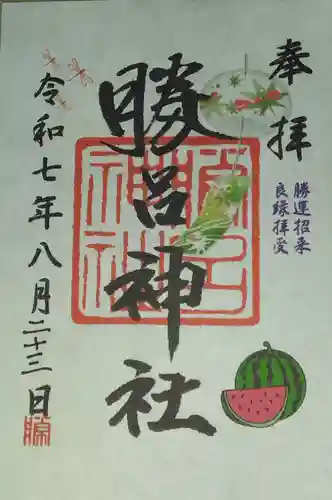 奉拝
勝運招来
良縁拝受
勝呂神社
令和七年八月二十三日